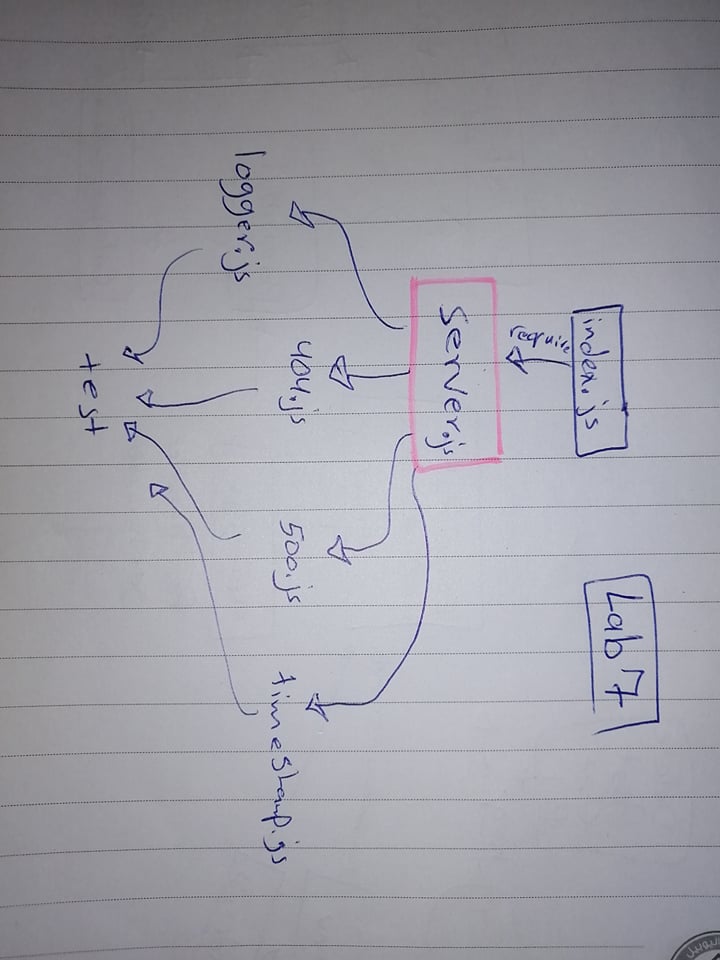 Lab 7
index.js
require
Server.js
logger.js
404.js
500.js
timeStamp.js
test